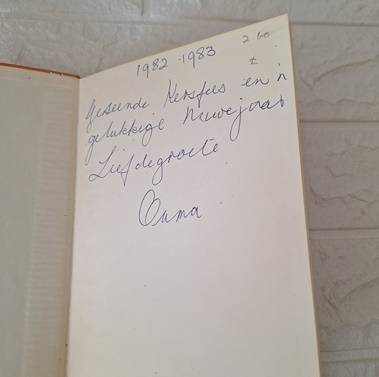 1982-1983 2 60
±
Geseënde Kersfees en 'n
gelukkige Nuwejaar
Liefdegroete
Ouma